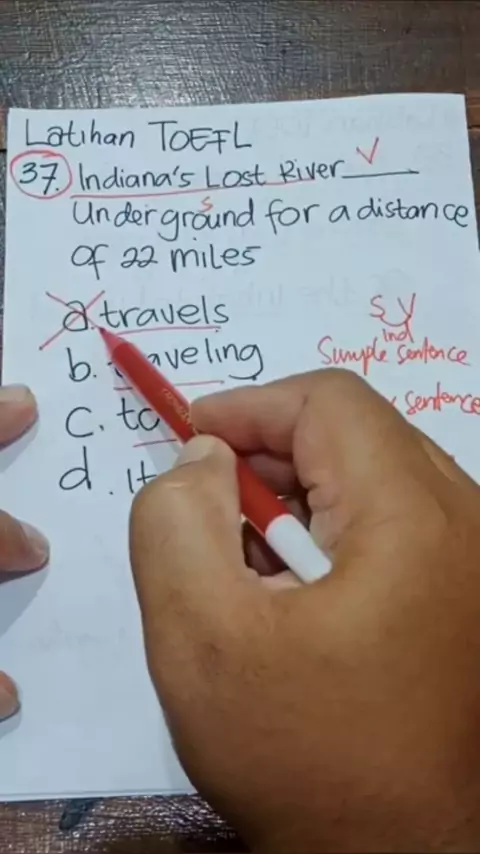 Latihan TOEFL
37. Indiana's Lost River V
Underground for a distance
S
of 22 miles
a. travels
b. traveling
c. to
d. It
S V
ind
Simple sentence
sentence